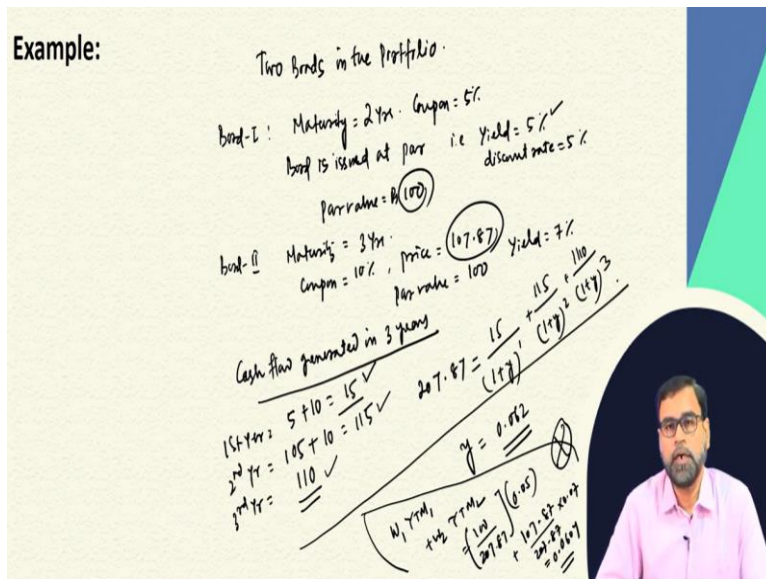 Example:
Two Bonds in the Portfolio.
Bond-I : Maturity = 2 Yrs. Coupon = 5%
Bond is issued at par i.e Yield = 5% ✓
discount rate = 5%
Par value = Rs 100
Bond-II Maturity = 3 Yrs.
Coupon = 10%, price = 107.87, Yield = 7%
Par value = 100
Cash flow generated in 3 years
1st yr = 5 + 10 = 15 ✓
2nd yr = 105 + 10 = 115 ✓
3rd yr = 110 ✓
207.87 = 15/(1+y)^1 + 115/(1+y)^2 + 110/(1+y)^3.
y = 0.062
W1 YTM1
+ W2 YTM2
= (100/207.87)(0.05)
+ 107.87/207.87 × 0.07
= 0.0604